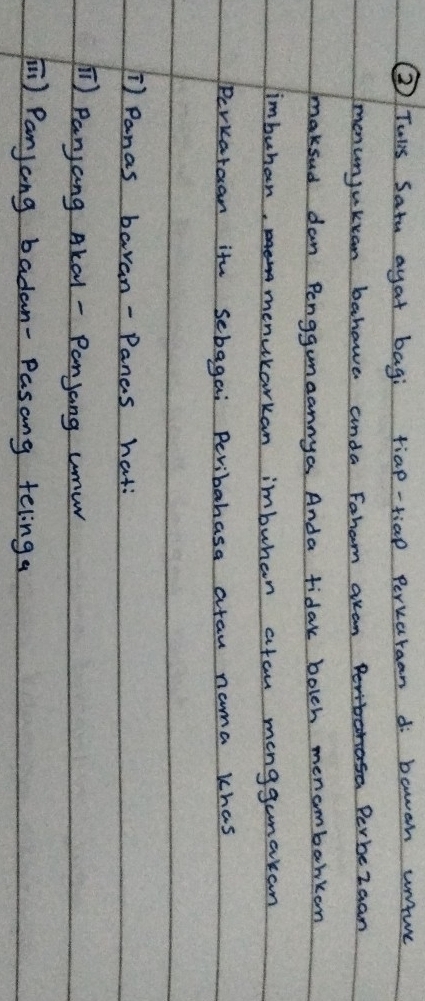 ② Tulis Satu ayat bagi tiap-tiap Perkataan di bawah untuk
menunjukkan bahawa anda Faham akan Peribahasa Perbezaan
maksud dan Penggunaannya Anda tidak boleh menambahkan
imbuhan, menukarkan imbuhan atau menggunakan
Perkataan itu Sebagai Peribahasa atau nama khas
I) Panas baran - Panas hati
II) Panjang Akal - Panjang umur
III) Panjang badan - Pasang telinga